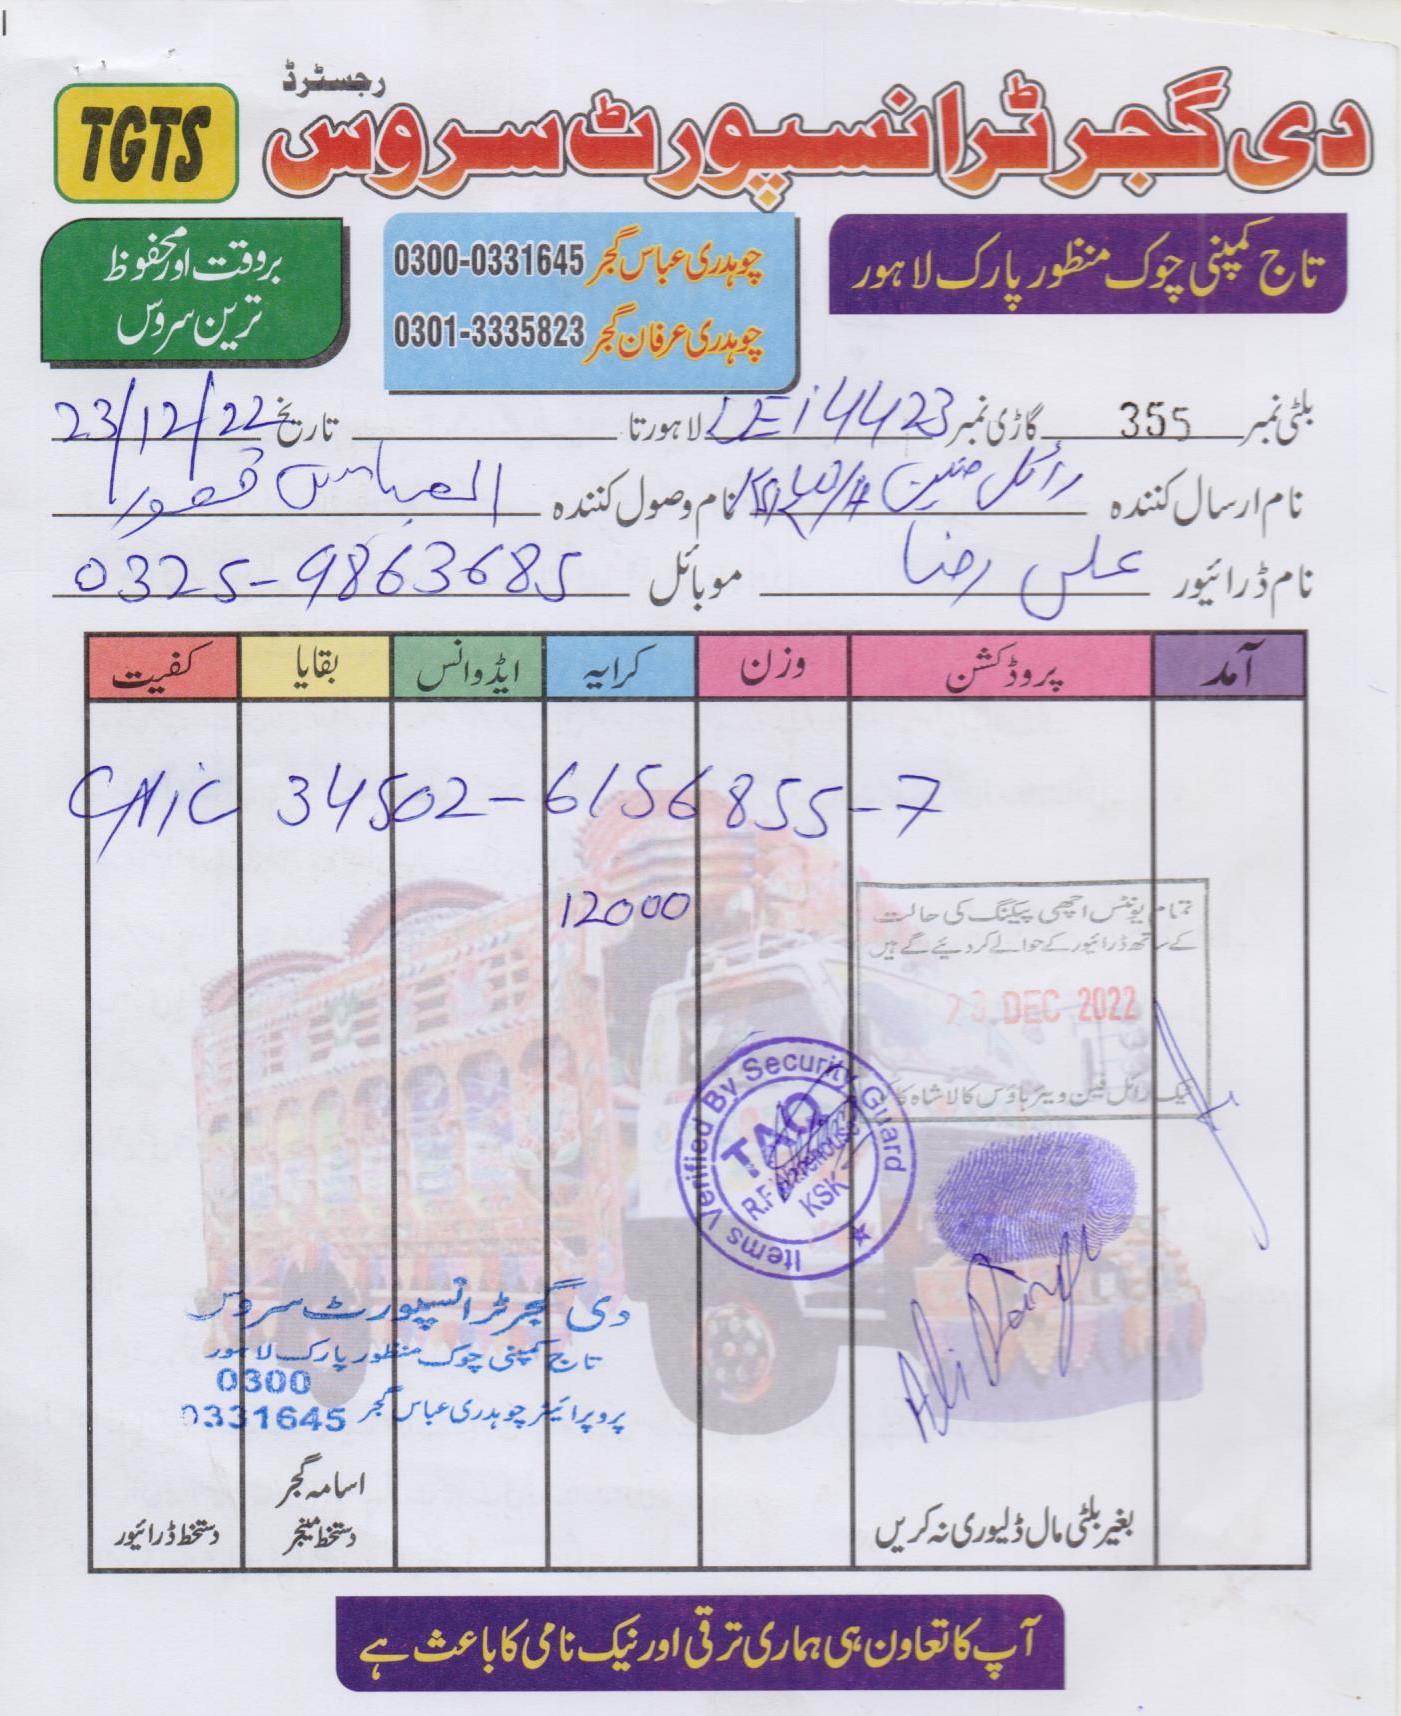 رجسٹرڈ
TGTS
دی گجر ٹرانسپورٹ سروس
تاج کمپنی چوک منظور پارک لاہور
چوہدری عباس گجر 0300-0331645
چوہدری عرفان گجر 0301-3335823
بروقت اور محفوظ
ترین سروس
بلٹی نمبر 355 گاڑی نمبر LEi 4423 لاہور تا تاریخ 23/12/22
نام ارسال کنندہ رائل فین نام وصول کنندہ العباس قصور
نام ڈرائیور علی رضا موبائل 0325-9863685
آمد پروڈکشن وزن کرایہ ایڈوانس بقایا کفیت
CNIC 34502-6156855-7
12000
تمام یونٹس اچھی پیکنگ کی حالت
کے ساتھ ڈرائیور کے حوالے کر دیئے گئے ہیں
23 DEC 2022
رائل فین ویئر ہاؤس کالا شاہ کاکو
Items Verified By Security Guard
TAQ
R.F Warehouse
KSK
Ali
دی گجر ٹرانسپورٹ سروس
تاج کمپنی چوک منظور پارک لاہور
0300
پروپرائیٹر چوہدری عباس گجر 0331645
اسامہ گجر
بغیر بلٹی مال ڈلیوری نہ کریں
دستخط منیجر
دستخط ڈرائیور
آپ کا تعاون ہی ہماری ترقی اور نیک نامی کا باعث ہے